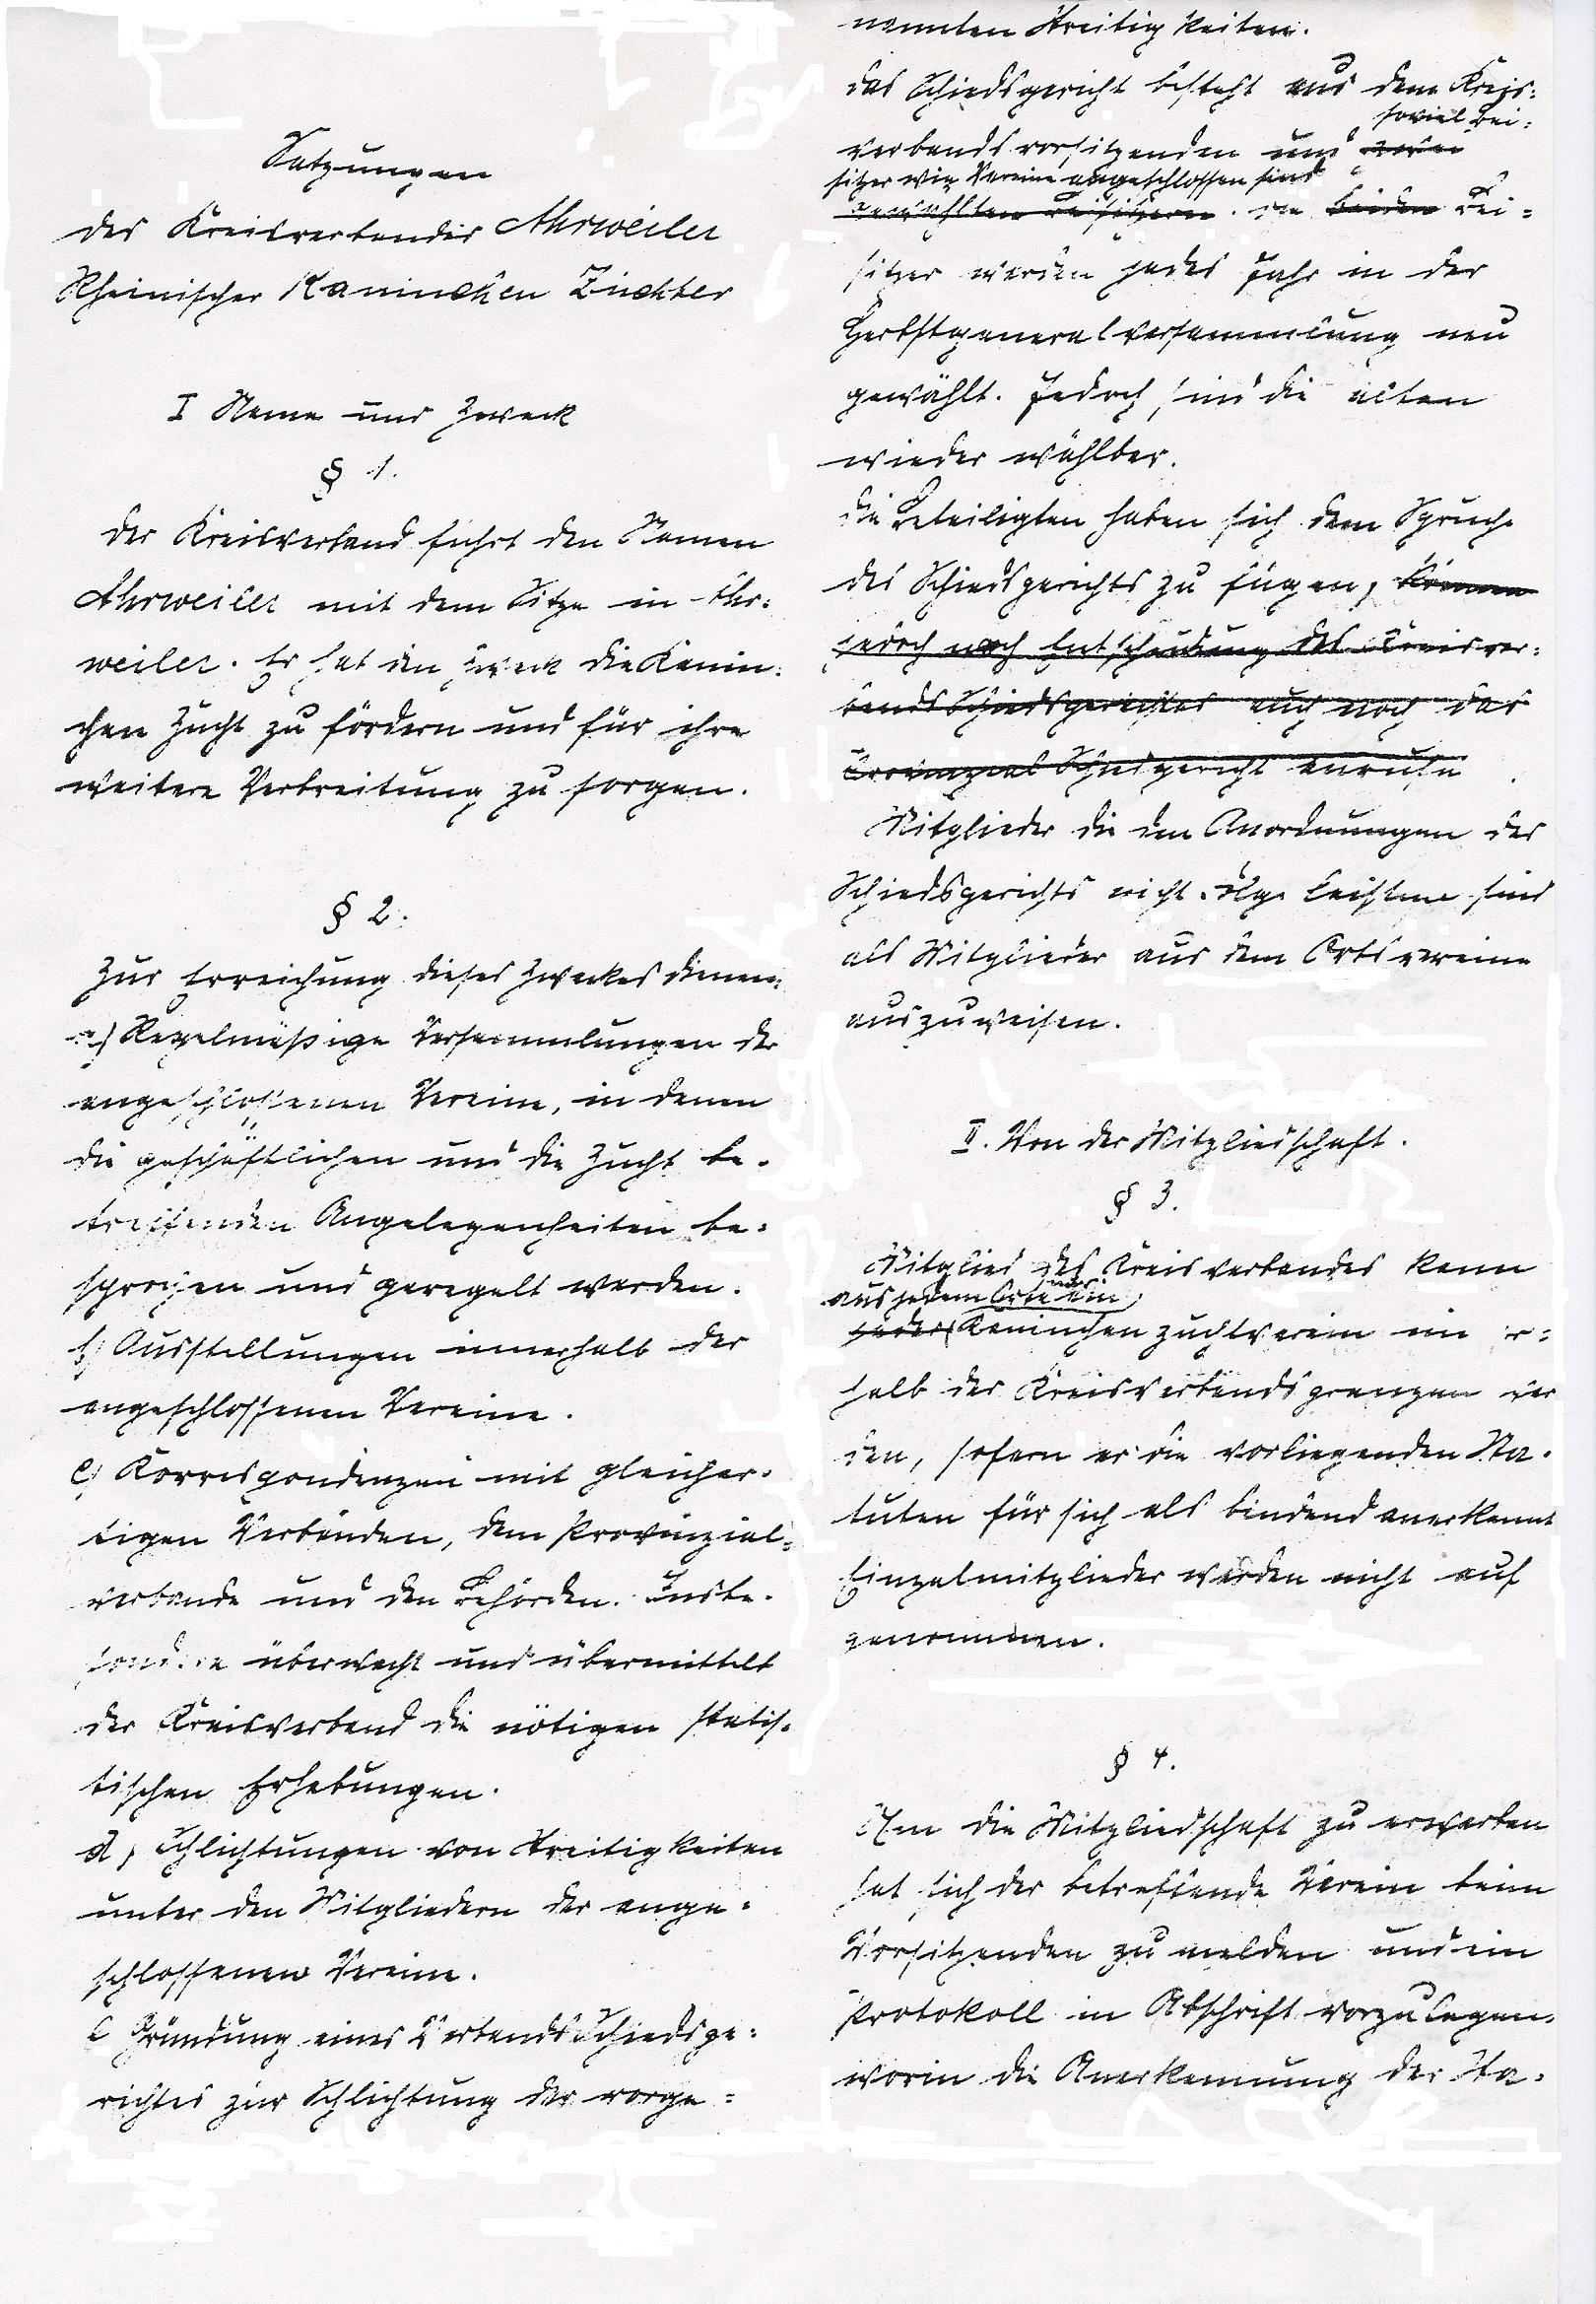 Satzungen
des Kreisverbandes Ahrweiler
Rheinischer Kaninchen Züchter
I Name und Zweck
§ 1.
Der Kreisverband führt den Namen
Ahrweiler mit dem Sitze in Ahr:
weiler. Er hat den Zweck die Kanin:
chen Zucht zu fördern und für ihre
weitere Verbreitung zu sorgen.
§ 2.
Zur Erreichung dieses Zweckes dienen:
a) Regelmäßige Versammlungen der
angeschlossenen Vereine, in denen
die geschäftlichen und die Zucht be-
treffenden Angelegenheiten be=
sprochen und geregelt werden.
b) Ausstellungen innerhalb der
angeschlossenen Vereine.
c) Korrespondenzen mit gleichar-
tigen Verbänden, dem Provinzial=
verbande und den Behörden. Insbe-
sondere überwacht und übermittelt
der Kreisverband die nötigen statis-
tischen Erhebungen.
d) Schlichtungen von Streitigkeiten
unter den Mitgliedern der ange=
schlossenen Vereine.
e Gründung eines Verbands Schiedsge=
richtes zur Schlichtung der vorge=
nannten Streitigkeiten.
Das Schiedsgericht besteht aus dem Kreis:
soviel Bei:
verbandsvorsitzenden und
sitzer wie Vereine angeschlossen sind
gewählten Beisitzern. Die beiden Bei=
sitzer werden jedes Jahr in der
Herbstgeneralversammlung neu
gewählt. Jedoch sind die alten
wieder wählbar.
Die Beteiligten haben sich dem Spruche
des Schiedsgerichts zu fügen, können
jedoch nach Entscheidung des Kreisver:
bands Schiedsgerichtes auch noch das
Provinzial Schiedgericht anrufen.
Mitglieder die den Anordnungen des
Schiedsgerichts nicht Folge leisten sind
als Mitglieder aus dem Ortsvereine
auszuweisen.
II. Von der Mitgliedschaft.
§ 3.
Mitglied des Kreisverbandes kann
nur
aus jedem Orte ein
jeder Kaninchenzuchtverein inner=
halb der Kreisverbandsgrenzen wer
den, sofern er die vorliegenden Sta-
tuten für sich als bindend anerkennt
Einzelmitglieder werden nicht auf
genommen.
§ 4.
Um die Mitgliedschaft zu erwerben
hat sich der betreffende Verein beim
Vorsitzenden zu melden und ein
Protokoll in Abschrift vorzulegen,
worin die Anerkennung der Sta-